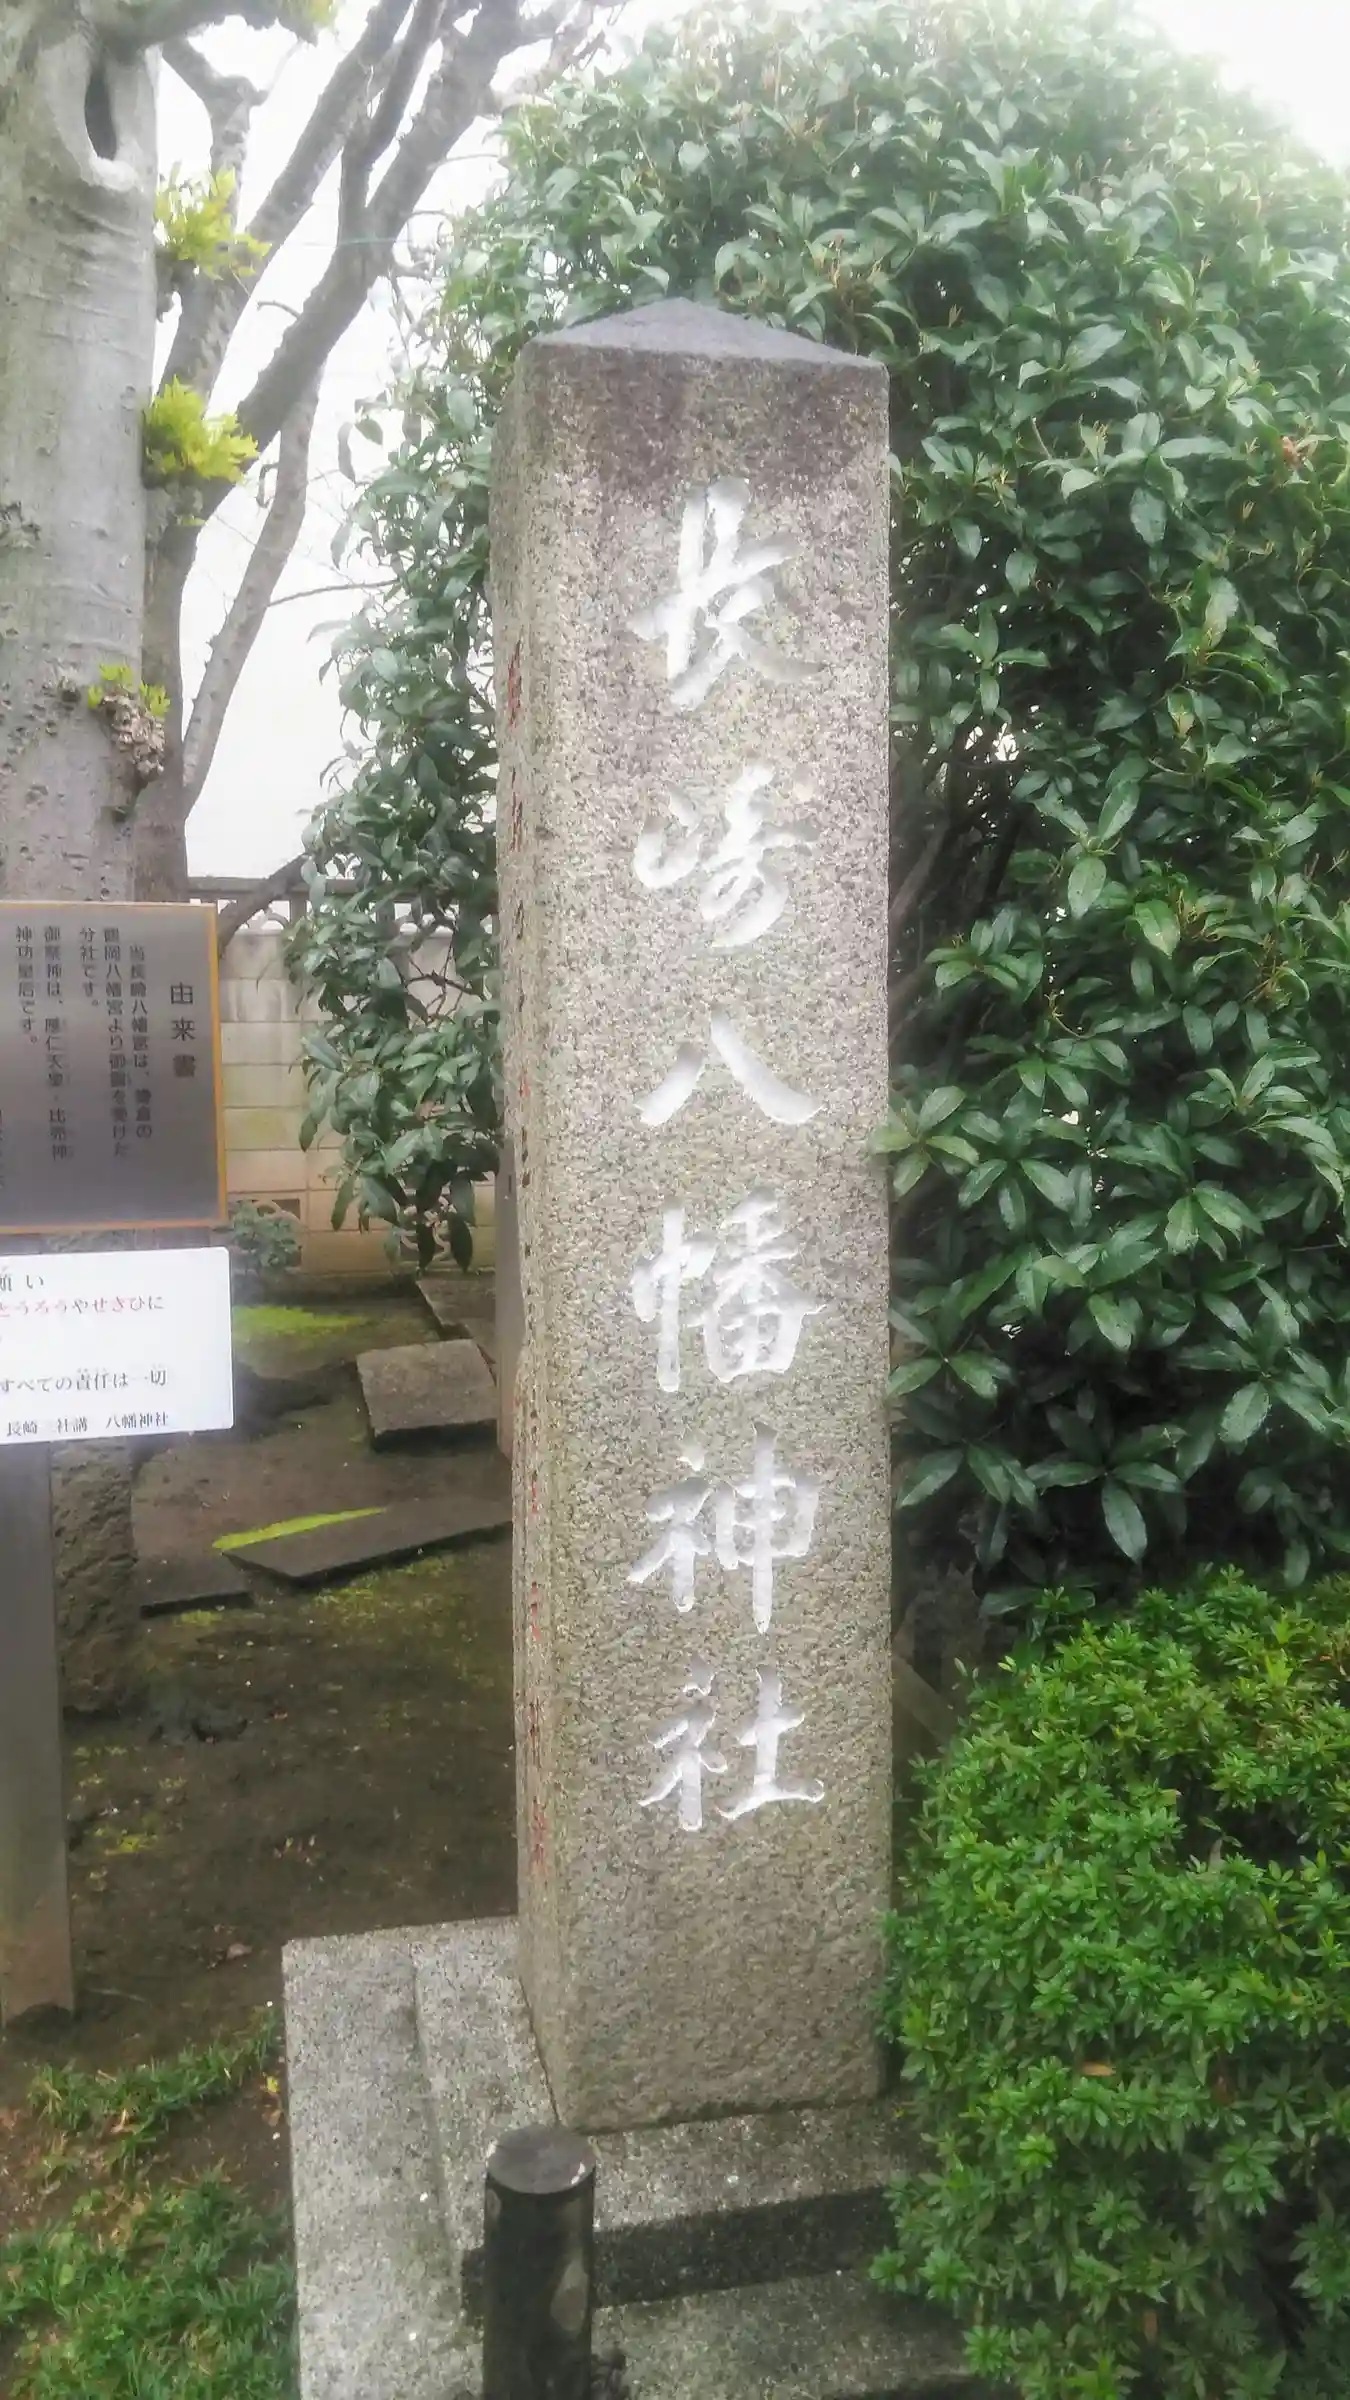 長崎八幡神社
由来書
当長崎八幡宮は、鎌倉の
鶴岡八幡宮より御霊を受けた
分社です。
御祭神は、應仁天皇・比売神
神功皇后です。
願い
とうろうやせきひに
すべての責任は一切
長崎三社講 八幡神社